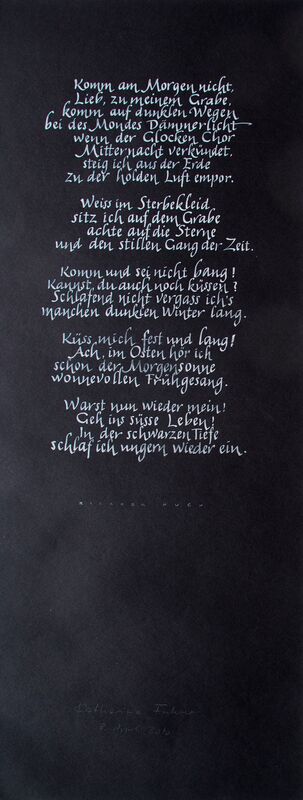 Komm am Morgen nicht,
Lieb, zu meinem Grabe,
komm auf dunklen Wegen
bei des Mondes Dämmerlicht
wenn der Glocken Chor
Mitternacht verkündet,
steig ich aus der Erde
zu der holden Luft empor.
Weiss im Sterbekleid
sitz ich auf dem Grabe
achte auf die Sterne
und den stillen Gang der Zeit.
Komm und sei nicht bang!
Kannst du auch noch küssen?
Schlafend nicht vergass ich's
manchen dunklen Winter lang.
Küss mich fest und lang!
Ach, im Osten hör ich
schon der Morgensonne
wonnevollen Frühgesang.
Warst nun wieder mein!
Geh ins süsse Leben!
In der schwarzen Tiefe
schlaf ich ungern wieder ein.
RICARDA HUCH
Katharina
2010